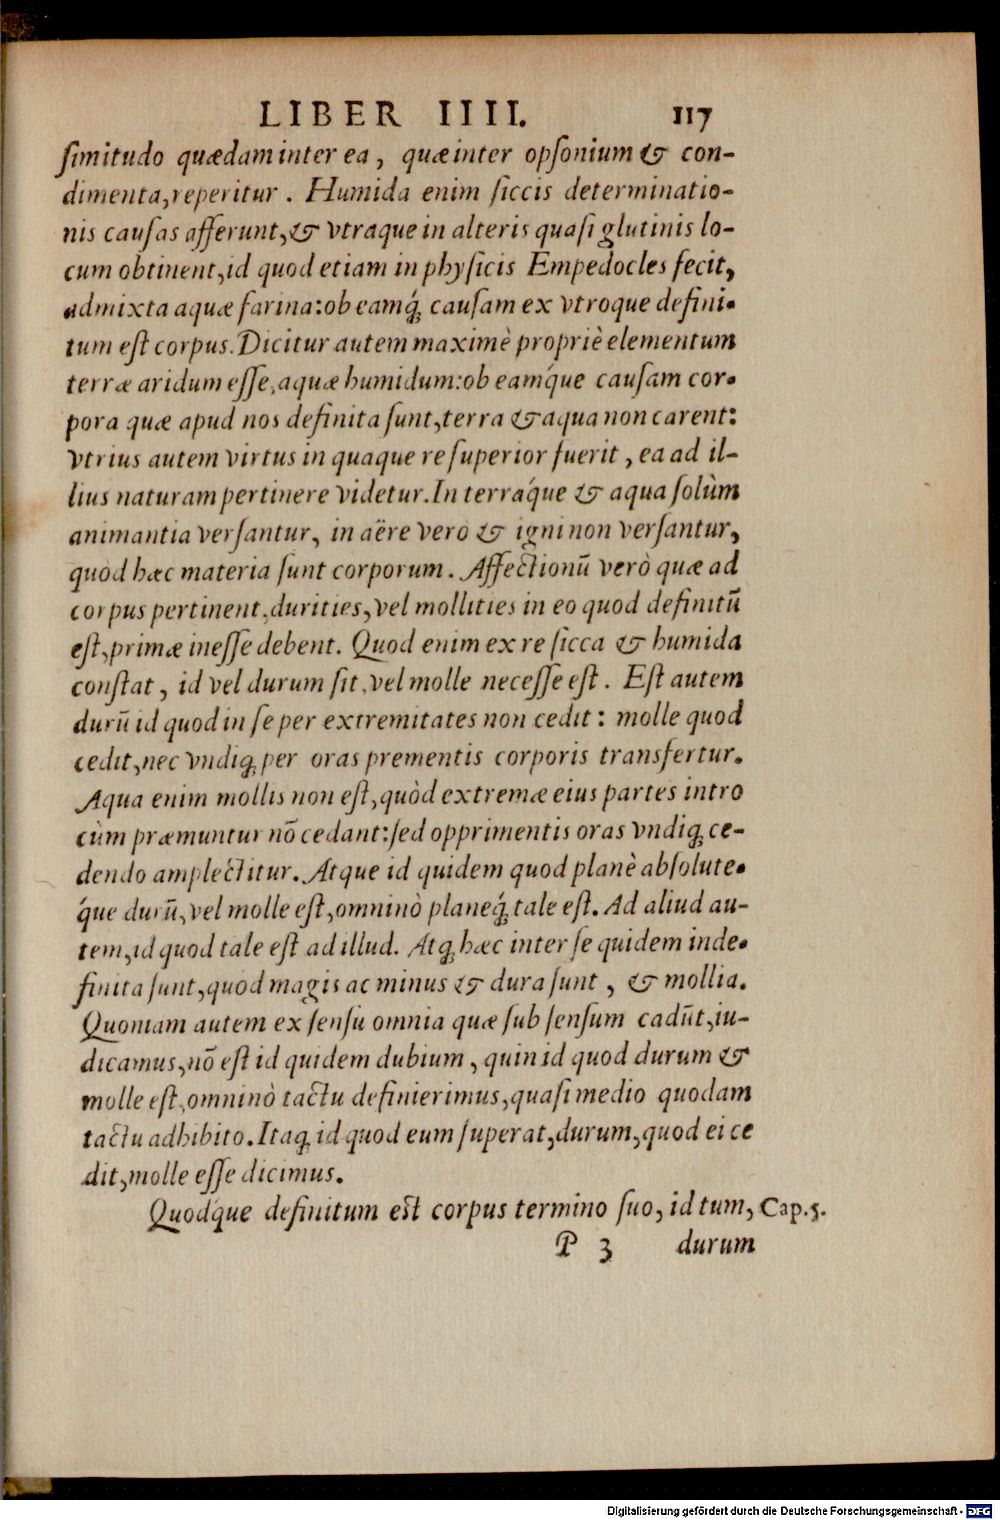 LIBER IIII. 117
ſimitudo quædam inter ea, quæ inter opſonium & con-
dimenta, reperitur. Humida enim ſiccis determinatio-
nis cauſas afferunt, & vtraque in alteris quaſi glutinis lo-
cum obtinent, id quod etiam in phyſicis Empedocles fecit,
admixta aquæ farina: ob eamq́; cauſam ex vtroque defini-
tum eſt corpus. Dicitur autem maximè propriè elementum
terræ aridum eſſe, aquæ humidum: ob eamq́ue cauſam cor-
pora quæ apud nos definita ſunt, terra & aqua non carent:
vtrius autem virtus in quaque re ſuperior fuerit, ea ad il-
lius naturam pertinere videtur. In terraq́ue & aqua ſolùm
animantia verſantur, in aëre verò & igni non verſantur,
quòd hæc materia ſunt corporum. Affectionũ verò quæ ad
corpus pertinent, durities, vel mollities in eo quod definitũ
eſt, primæ ineſſe debent. Quod enim ex re ſicca & humida
conſtat, id vel durum ſit, vel molle neceſſe eſt. Eſt autem
durũ id quod in ſe per extremitates non cedit: molle quod
cedit, nec vndiq; per oras prementis corporis transfertur.
Aqua enim mollis non eſt, quòd extremæ eius partes intro
cùm præmuntur nõ cedant: ſed opprimentis oras vndiq; ce-
dendo amplectitur. Atque id quidem quod planè abſolute-
q́ue durũ, vel molle eſt, omninò planeq́; tale eſt. Ad aliud au-
tem, id quod tale eſt ad illud. Atq; hæc inter ſe quidem inde-
finita ſunt, quod magis ac minus & dura ſunt, & mollia.
Quoniam autem ex ſenſu omnia quæ ſub ſenſum cadũt, iu-
dicamus, nõ eſt id quidem dubium, quin id quod durum &
molle eſt, omninò tactu definierimus, quaſi medio quodam
tactu adhibito. Itaq; id quod eum ſuperat, durum, quod ei ce
dit, molle eſſe dicimus.
Quodq́ue definitum eſt corpus termino ſuo, id tum, Cap. 5.
P 3 durum
Digitalisierung gefördert durch die Deutsche Forschungsgemeinschaft - DFG